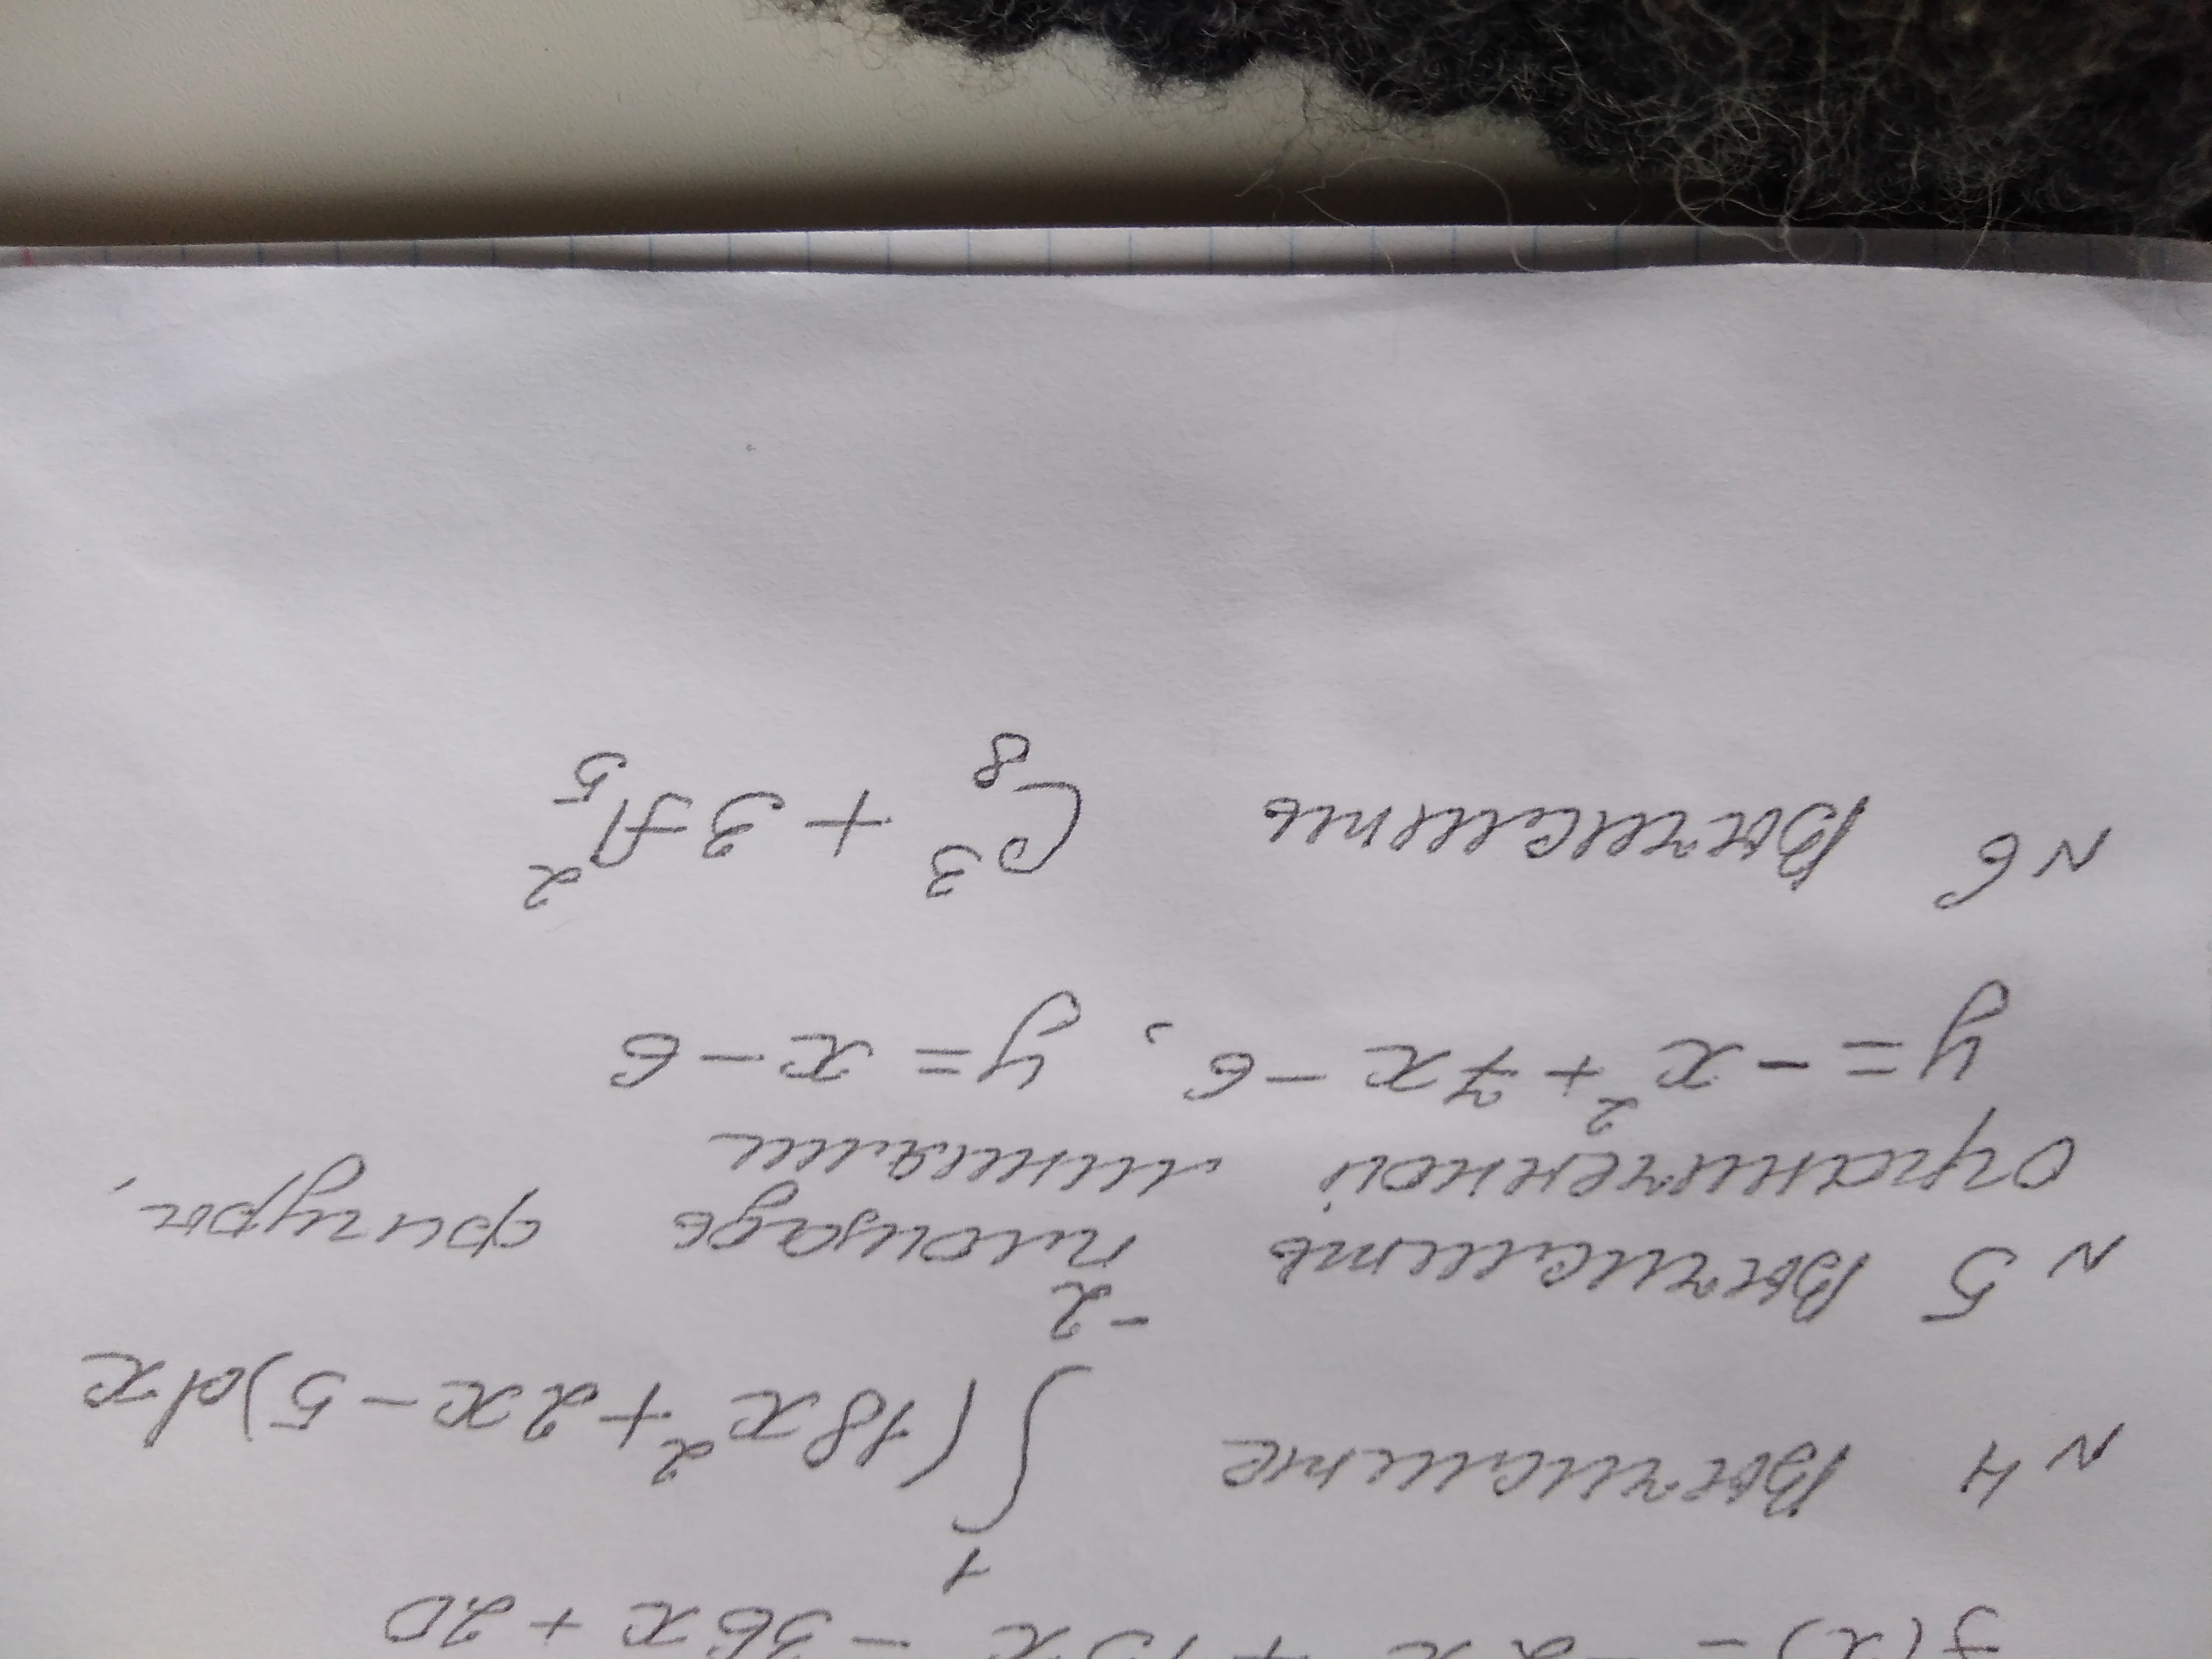 f(x) = 2x + 15x - 36x + 20
N 4 Вычислите ∫₋₂¹ (18x² + 2x - 5)dx
N 5 Вычислить площадь фигуры,
ограниченной линиями
y = -x² + 7x - 6, y = x - 6
N 6 Вычислить C₈³ + 3A₅²